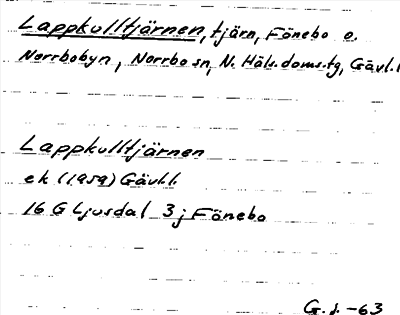 Lappkulltjärnen, tjärn, Fönebo o.
Norrbobyn, Norrbo sn, N. Häls. doms.tg, Gävl.l
Lappkulltjärnen
ek (1959) Gävl.l.
16 G Ljusdal 3 j Fönebo
G. J. -63